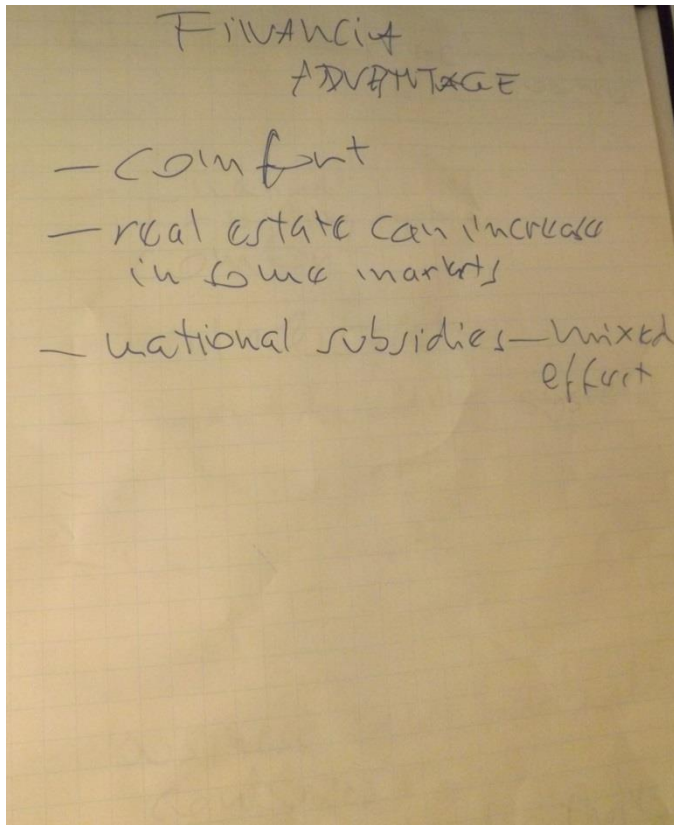 FINANCIA
ADVANTAGE
- comfort
- real estate can increase
in some markets
- national subsidies - mixed
effect